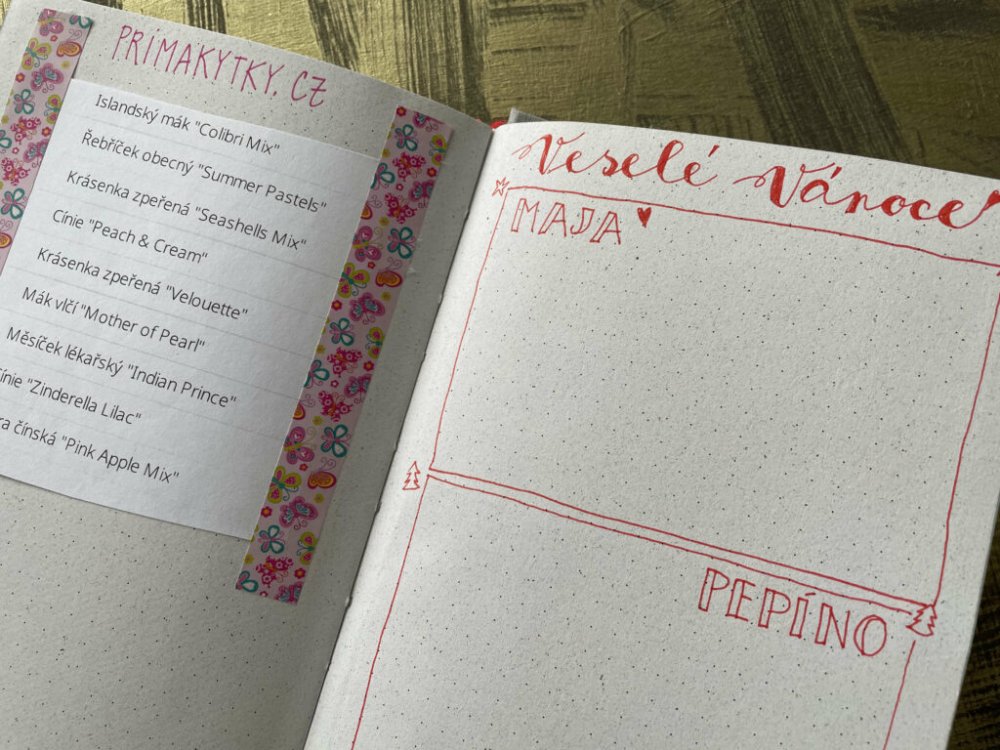 PRIMAKYTKY.CZ
Islandský mák "Colibri Mix"
Řebříček obecný "Summer Pastels"
Krásenka zpeřená "Seashells Mix"
Cínie "Peach & Cream"
Krásenka zpeřená "Velouette"
Mák vlčí "Mother of Pearl"
Měsíček lékařský "Indian Prince"
Cínie "Zinderella Lilac"
čínská "Pink Apple Mix"
Veselé Vánoce
MAJA
PEPÍNO